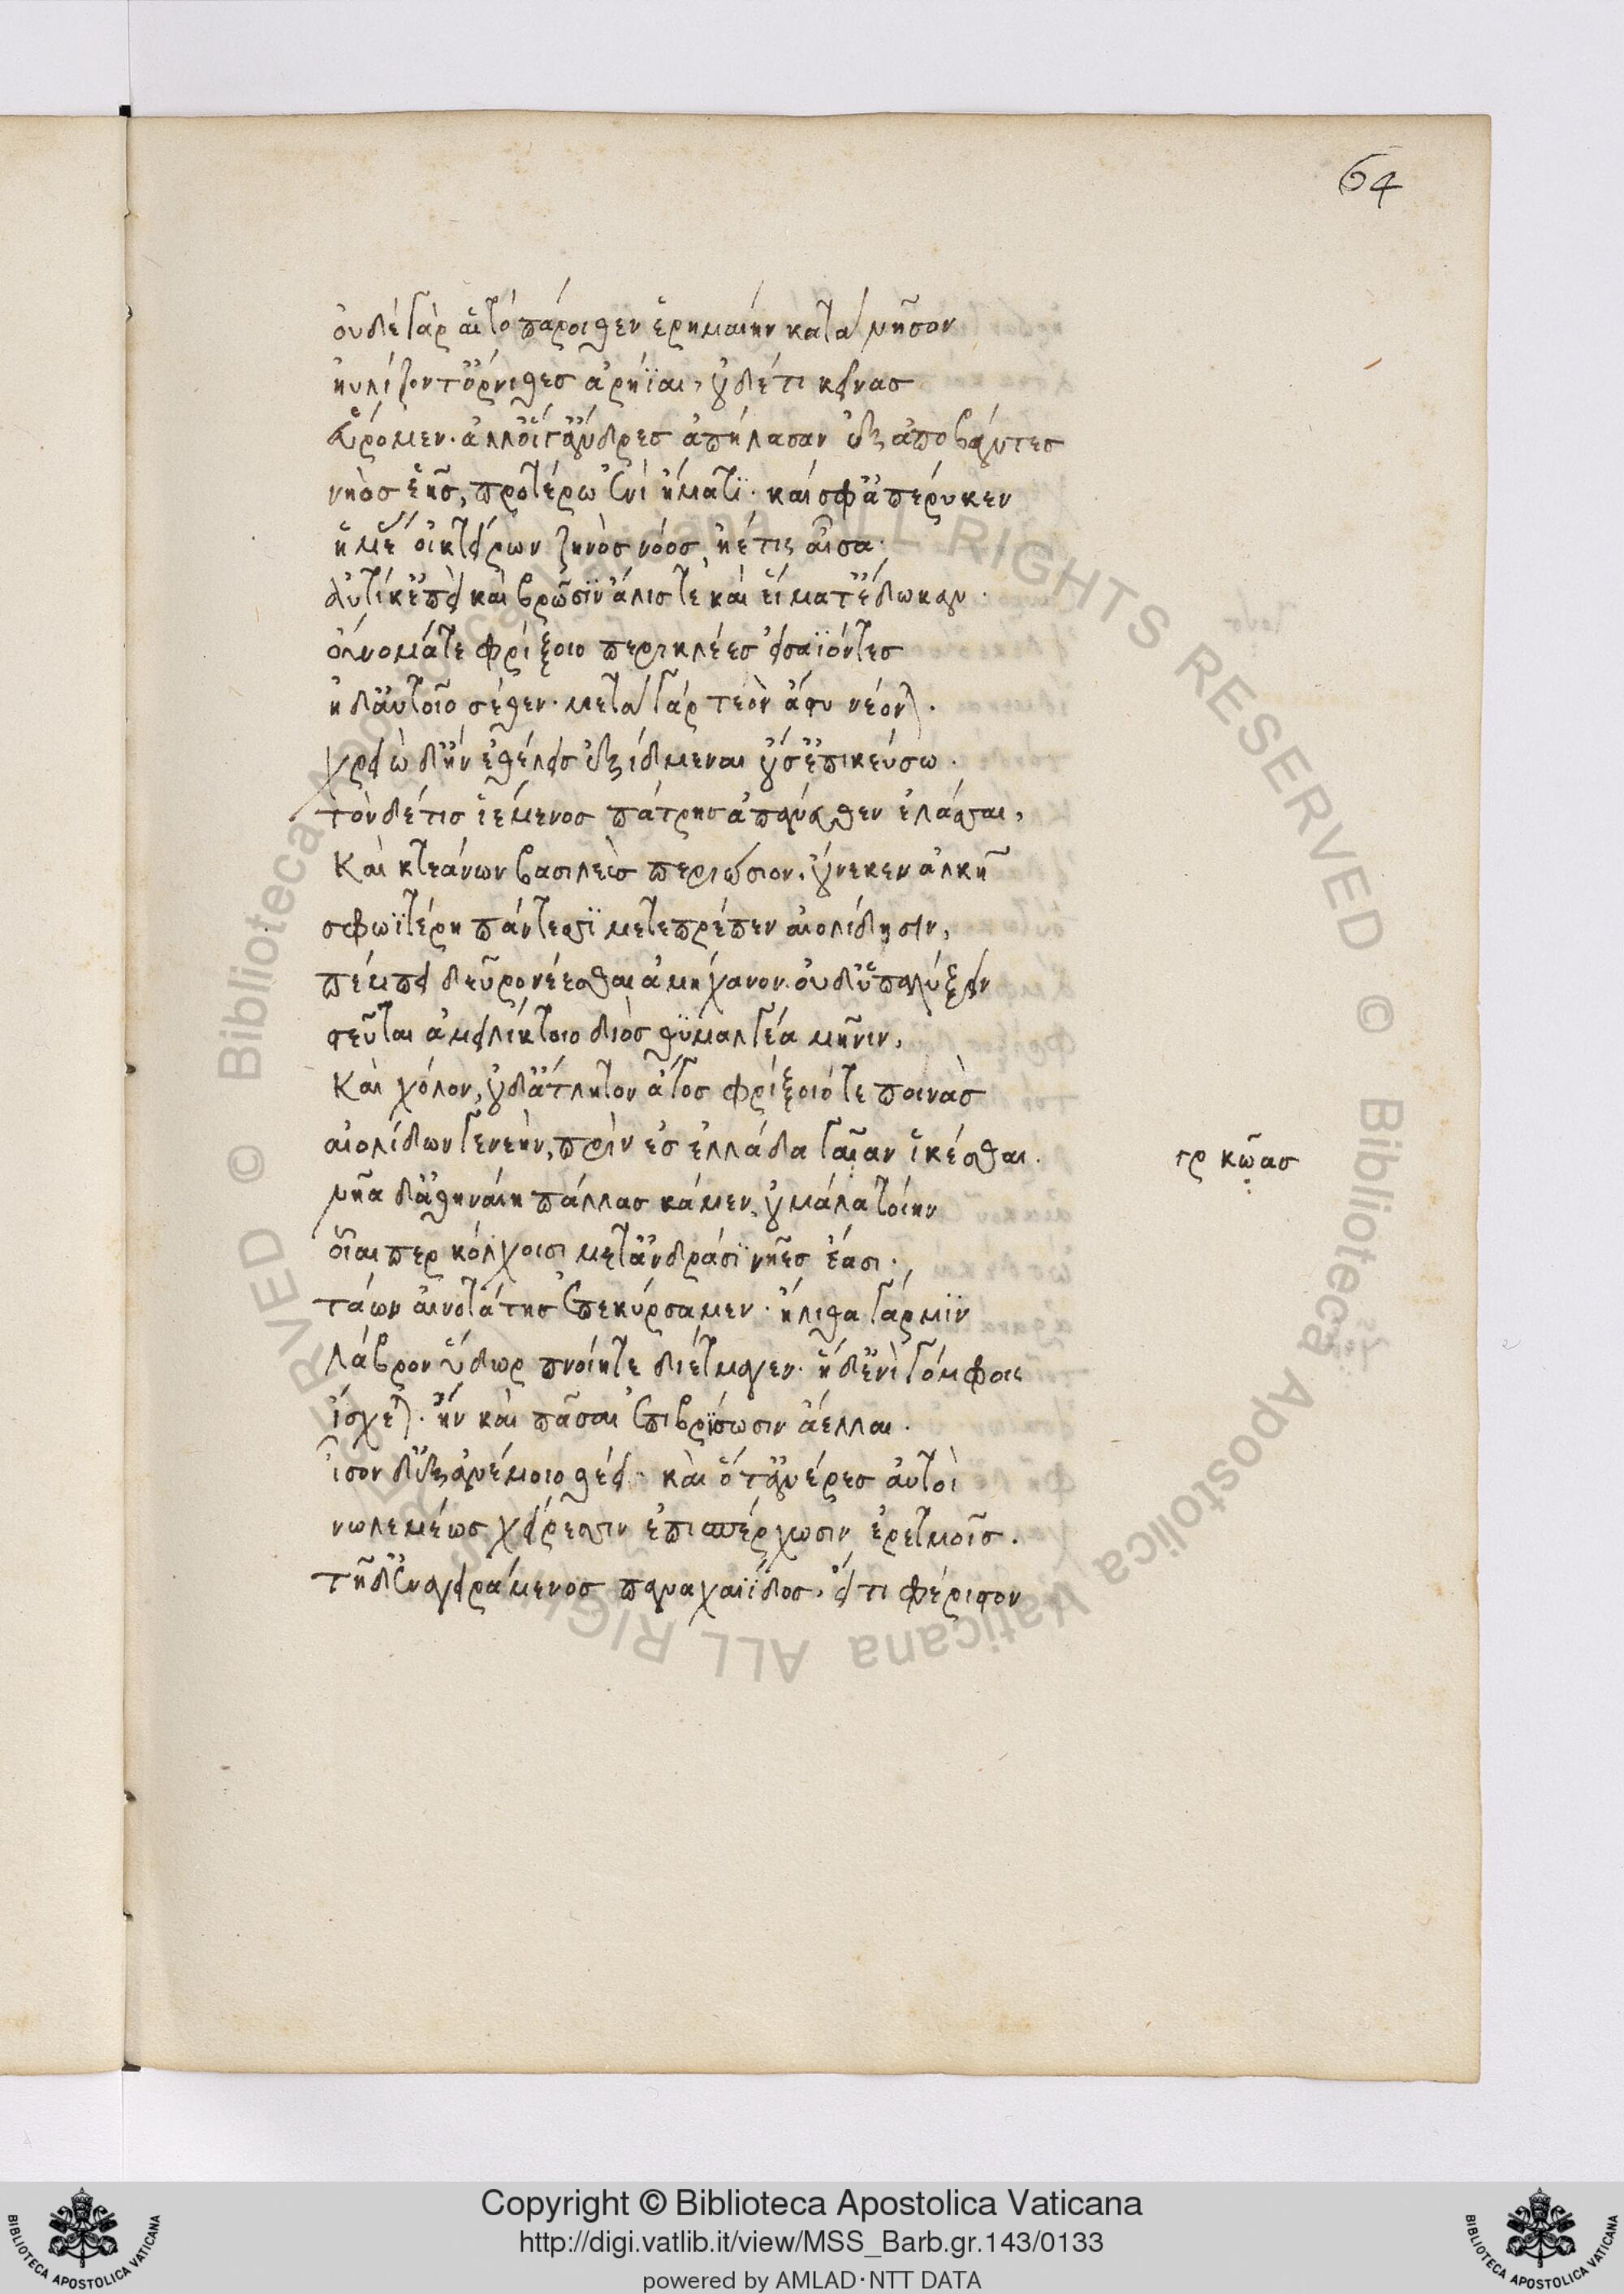 64
οὐδὲ γὰρ αἳ τὸ πάροιθεν ἐρημαίην κατὰ νῆσον
ηὐλίζοντ ὄρνιθες ἀρήϊαι, οὐδέ τι κείνας
εὕρομεν. ἀλλ οἵ γ ἄνδρες ἀπήλασαν ἐξαποβάντες
νηὸς ἑῆς, προτέρω ἐνὶ ἤματι. καί σφ ἀπέρυκεν
ἡμέ οἰκτείρων ζηνὸς νόος, ἠέ τις αἶσα.
αὐτίκ ἐπεὶ καὶ βρῶσιν ἅλις τε καὶ εἵματ ἔδωκαν.
οὔνομά τε φρίξοιο περικλέες εἰσαΐοντες
ἠδ αὐτοῖο σέθεν. μετὰ γὰρ τεὸν ἄστυ νέονται.
χρειὼ δ ἢν ἐθέλεις ἐξίδμεναι οὔ σ ἐπικεύσω.
τὸν δέ τις ἱέμενος πάτρης ἀπάνευθεν ἐλάσσαι,
Καὶ κτεάνων βασιλεὺς περιώσιον. οὕνεκεν ἀλκῇ
σφωϊτέρῃ πάντεσσι μετέπρεπεν αἰολίδῃσιν,
πέμπει δεῦρο νέεσθαι ἀμήχανον. οὐδ ὑπαλύξειν
στεῦται ἀμειλίκτοιο διὸς θυμαλγέα μῆνιν,
Καὶ χόλον, οὐδ ἄτλητον ἄγος φρίξοιό τε ποινὰς
αἰολίδων γενεὴν, πρὶν ἐς ἑλλάδα γαῖαν ἱκέσθαι.
γρ κῶας
νῆα δ ἀθηναίη πάλλας κάμεν, οὐ μάλα τοίην
οἷαι περ κόλχοισι μετ ἀνδράσι νῆες ἔασι.
τάων αἰνοτάτης ἐπεκύρσαμεν. ἤλιθα γάρ μιν
λάβρον ὕδωρ πνοιή τε διέτμαγεν. ἡ δ ἐνὶ γόμφοις
ἴσχεται. ἢν καὶ πᾶσαι ἐπιβρίσωσιν ἄελλαι.
ἶσον δ ἐξ ἀνέμοιο θέει. καὶ ὅτ ἀνέρες αὐτοὶ
νωλεμέως χείρεσσιν ἐπισπέρχωσιν ἐρετμοῖς.
τῇ δ ἐναγειράμενος παναχαιΐδος, εἴ τι φέριστον
Copyright © Biblioteca Apostolica Vaticana
http://digi.vatlib.it/view/MSS_Barb.gr.143/0133
powered by AMLAD·NTT DATA